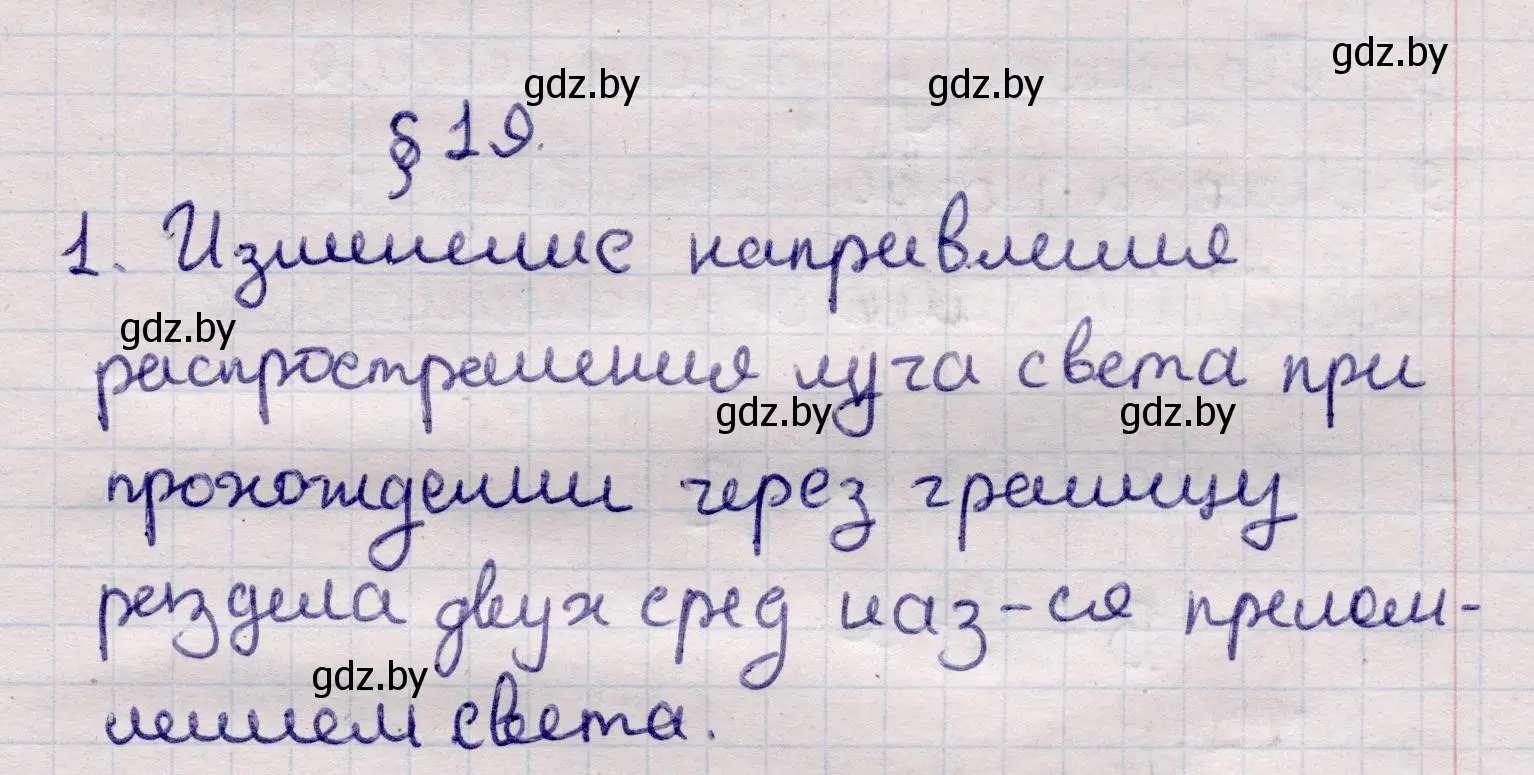 gdz.by
gdz.by gdz.by
§ 19.
1. Изменение направления
gdz.by
распространения луча света при
gdz.by gdz.by
прохождении через границу
раздела двух сред наз-ся прелом-
gdz.by
лением света.